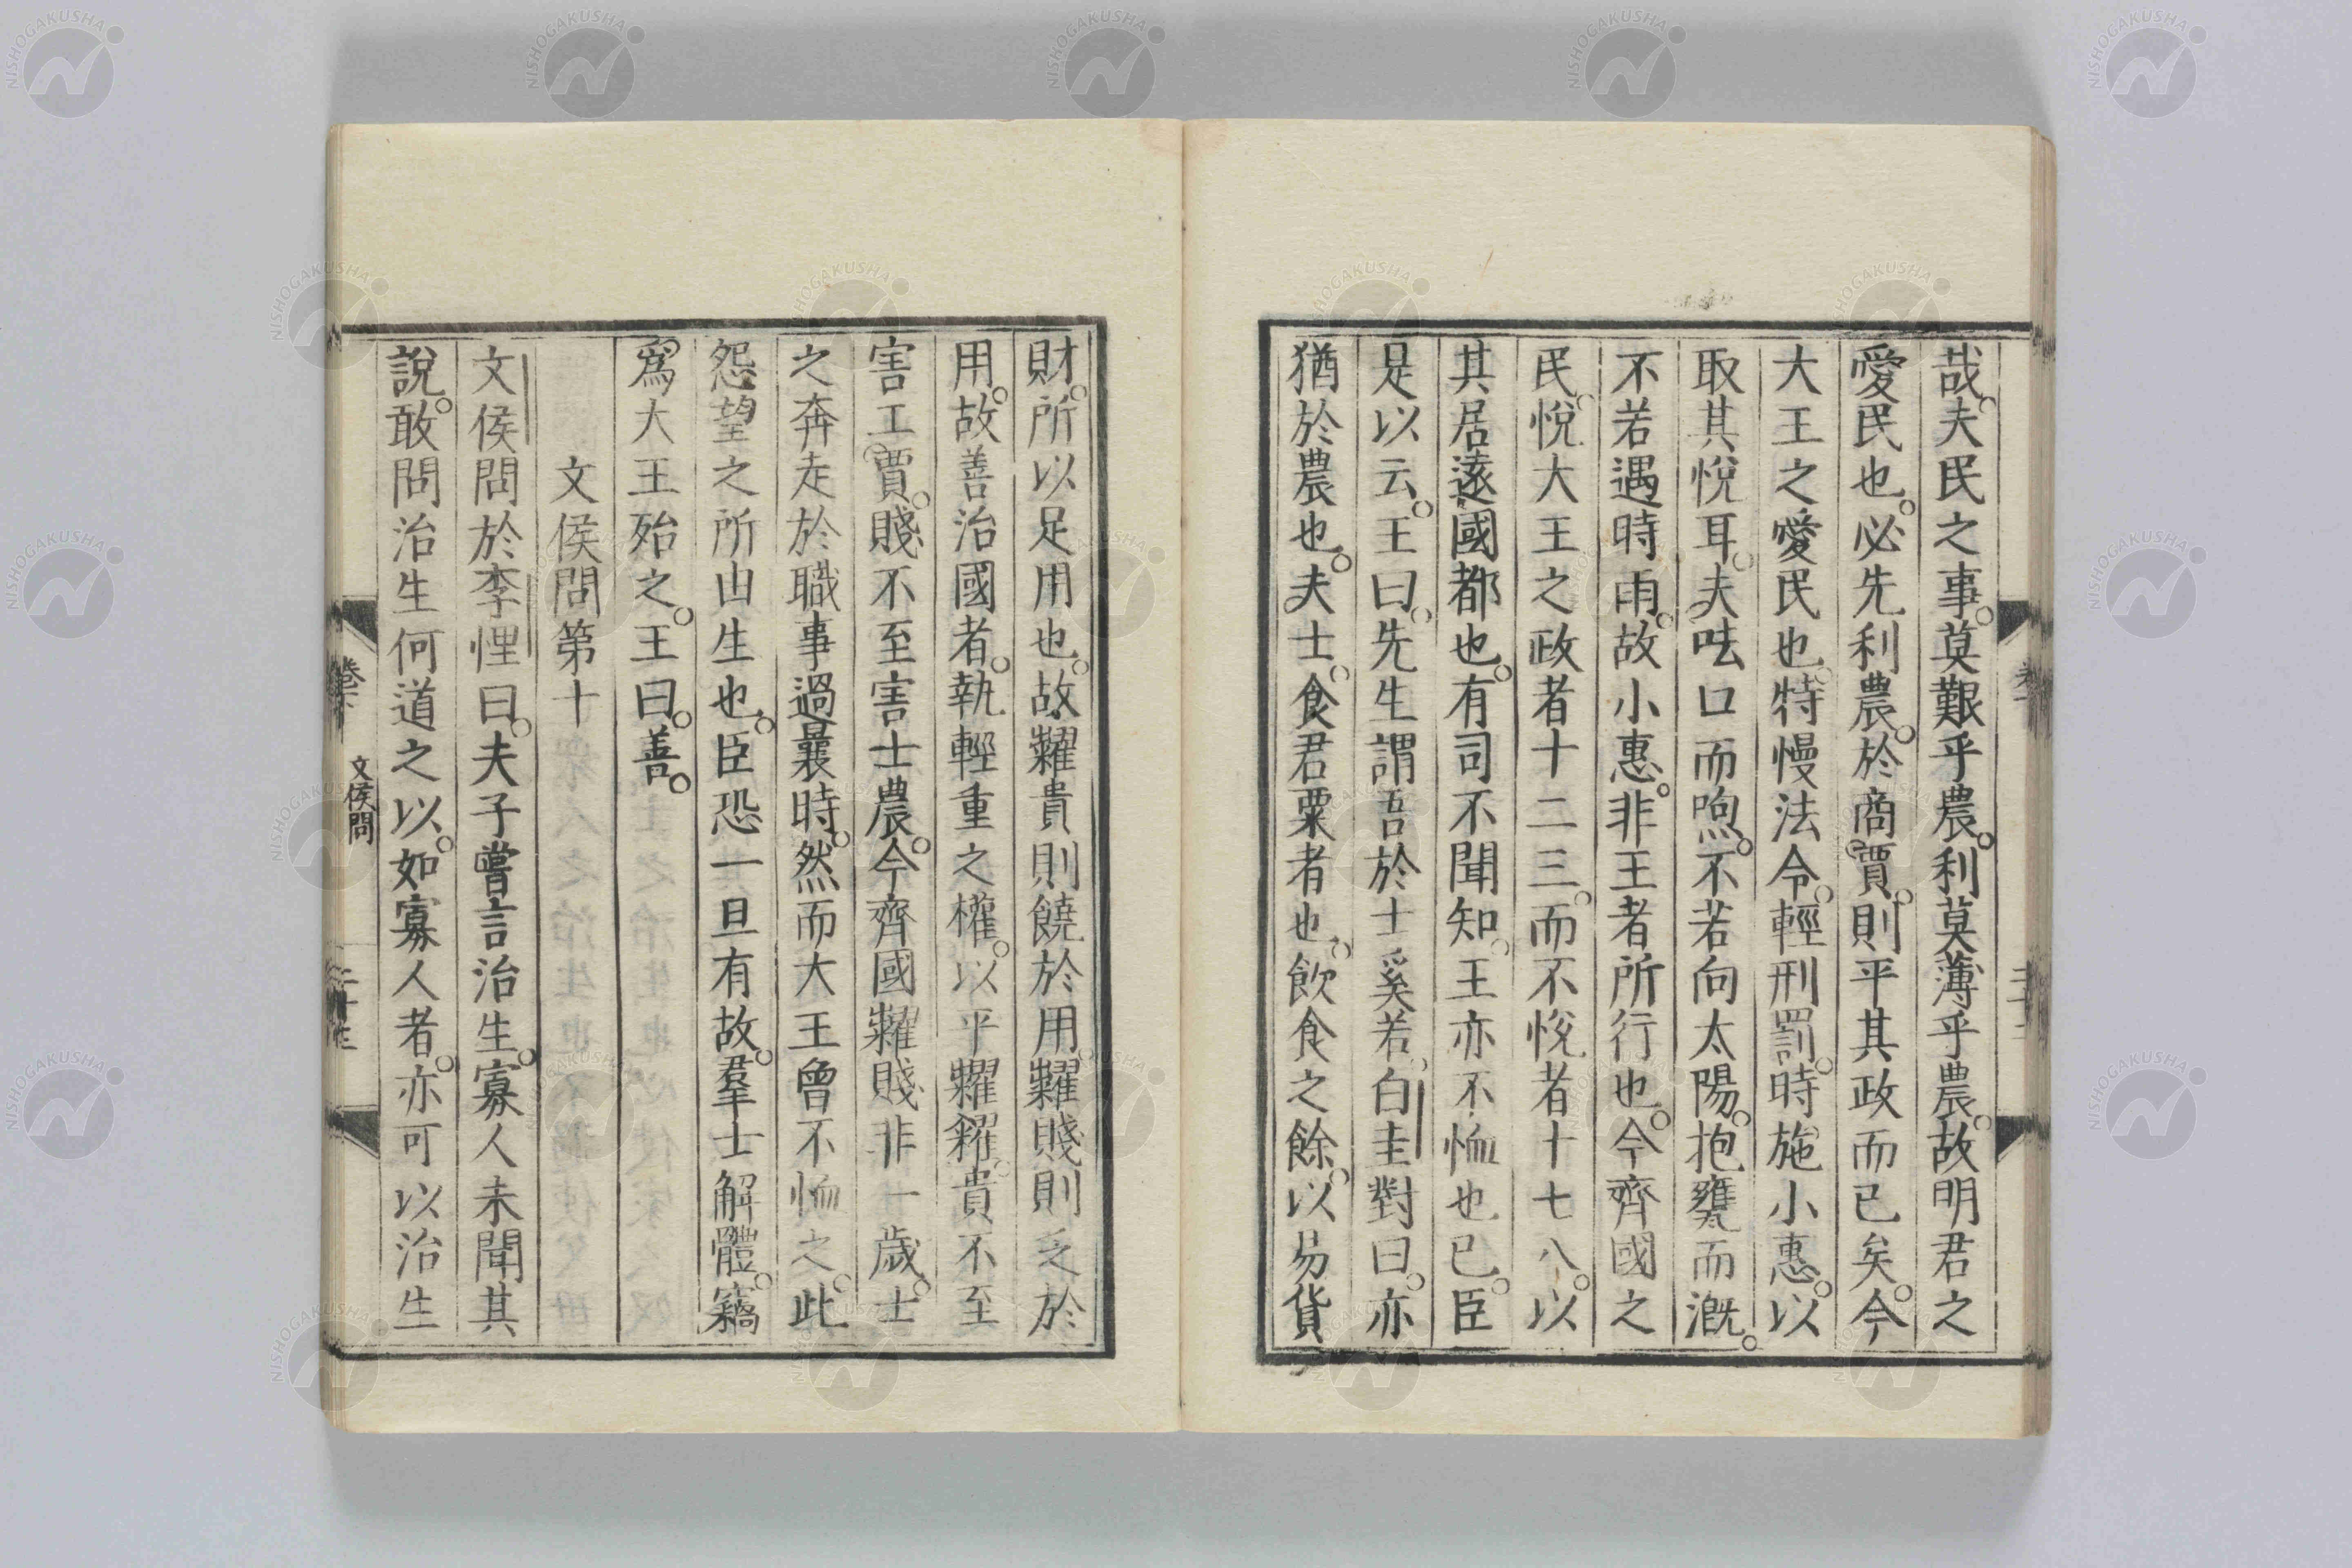 哉。夫民之事。莫艱乎農。利莫薄乎農。故明君之
愛民也。必先利農。於商賈。則平其政而已矣。今
大王之愛民也。特慢法令。輕刑罰。時施小惠。以
取其悅耳。夫呿口而呴。不若向太陽。抱甕而漑。
不若遇時雨。故小惠。非王者所行也。今齊國之
民。悅大王之政者十二三。而不悅者十七八。以
其居遠國都也。有司不聞知。王亦不恤也已。臣
是以云。王曰。先生謂吾於士奚若。白圭對曰。亦
猶於農也。夫士。食君粟者也。飲食之餘。以易貨
財。所以足用也。故糶貴則饒於用。糶賤則乏於
用。故善治國者。執輕重之權。以平糶糴。貴不至
害工賈。賤不至害士農。今齊國糶賤非一歲。士
之奔走於職事過曩時。然而大王曾不恤之。此
怨望之所由生也。臣恐一旦有故。羣士解體。竊
爲大王殆之。王曰。善。
文侯問第十
文侯問於李悝曰。夫子嘗言治生。寡人未聞其
說。敢問治生何道之以。如寡人者。亦可以治生
卷下 文侯問
NISHOGAKUSHA